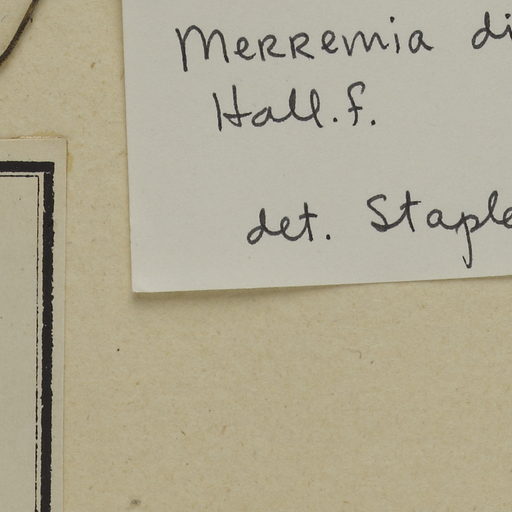 Merremia di
Hall.f.
det. Staple